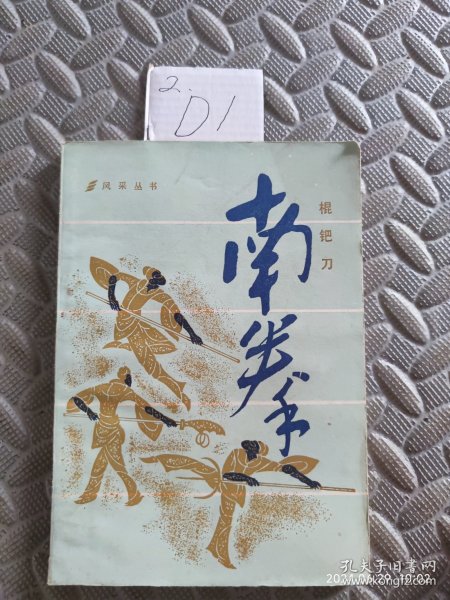 2.
D1
风采丛书
南拳
棍钯刀
孔夫子旧书网
www.kongfz.com